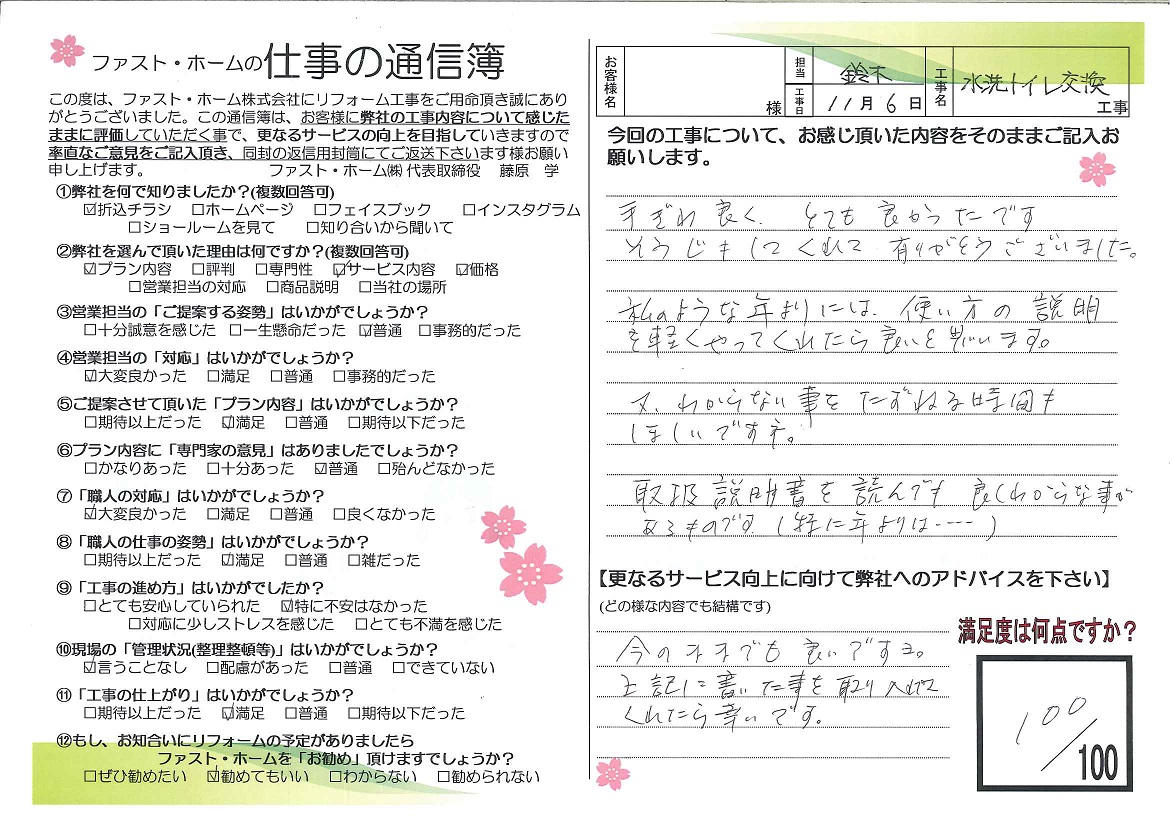 ファスト・ホームの仕事の通信簿
この度は、ファスト・ホーム株式会社にリフォーム工事をご用命頂き誠にあり
がとうございました。この通信簿は、お客様に弊社の工事内容について感じた
ままに評価していただく事で、更なるサービスの向上を目指していきますので
率直なご意見をご記入頂き、同封の返信用封筒にてご返送下さいます様お願い
申し上げます。 ファスト・ホーム㈱ 代表取締役 藤原 学
①弊社を何で知りましたか？(複数回答可)
☑折込チラシ □ホームページ □フェイスブック □インスタグラム
□ショールームを見て □知り合いから聞いて
②弊社を選んで頂いた理由は何ですか？(複数回答可)
☑プラン内容 □評判 □専門性 ☑サービス内容 ☑価格
□営業担当の対応 □商品説明 □当社の場所
③営業担当の「ご提案する姿勢」はいかがでしょうか？
□十分誠意を感じた □一生懸命だった ☑普通 □事務的だった
④営業担当の「対応」はいかがでしょうか？
☑大変良かった □満足 □普通 □事務的だった
⑤ご提案させて頂いた「プラン内容」はいかがでしょうか？
□期待以上だった ☑満足 □普通 □期待以下だった
⑥プラン内容に「専門家の意見」はありましたでしょうか？
□かなりあった □十分あった ☑普通 □殆んどなかった
⑦「職人の対応」はいかがでしょうか？
☑大変良かった □満足 □普通 □良くなかった
⑧「職人の仕事の姿勢」はいかがでしょうか？
□期待以上だった ☑満足 □普通 □雑だった
⑨「工事の進め方」はいかがでしたか？
□とても安心していられた ☑特に不安はなかった
□対応に少しストレスを感じた □とても不満を感じた
⑩現場の「管理状況(整理整頓等)」はいかがでしょうか？
☑言うことなし □配慮があった □普通 □できていない
⑪「工事の仕上がり」はいかがでしょうか？
□期待以上だった ☑満足 □普通 □期待以下だった
⑫もし、お知合いにリフォームの予定がありましたら
ファスト・ホームを「お勧め」頂けますでしょうか？
□ぜひ勧めたい ☑勧めてもいい □わからない □勧められない
お客様名 様 担当 鈴木 工事日 11月6日 工事名 水洗トイレ交換 工事
今回の工事について、お感じ頂いた内容をそのままご記入お
願いします。
手ぎわ良く、とても良かったです
そうじもしてくれて 有りがとうございました。
私のような年よりには、使い方の説明
を軽くやってくれたら良いと思います。
又、わからない事をたずねる時間も
ほしいですネ。
取扱説明書を読んでも 良くわからな事が
あるものです(特に年よりは----)
【更なるサービス向上に向けて弊社へのアドバイスを下さい】
(どの様な内容でも結構です)
今のままでも良いですヨ。
上記に書いた事を取り入れて
くれたら幸いです。
満足度は何点ですか？
100/100